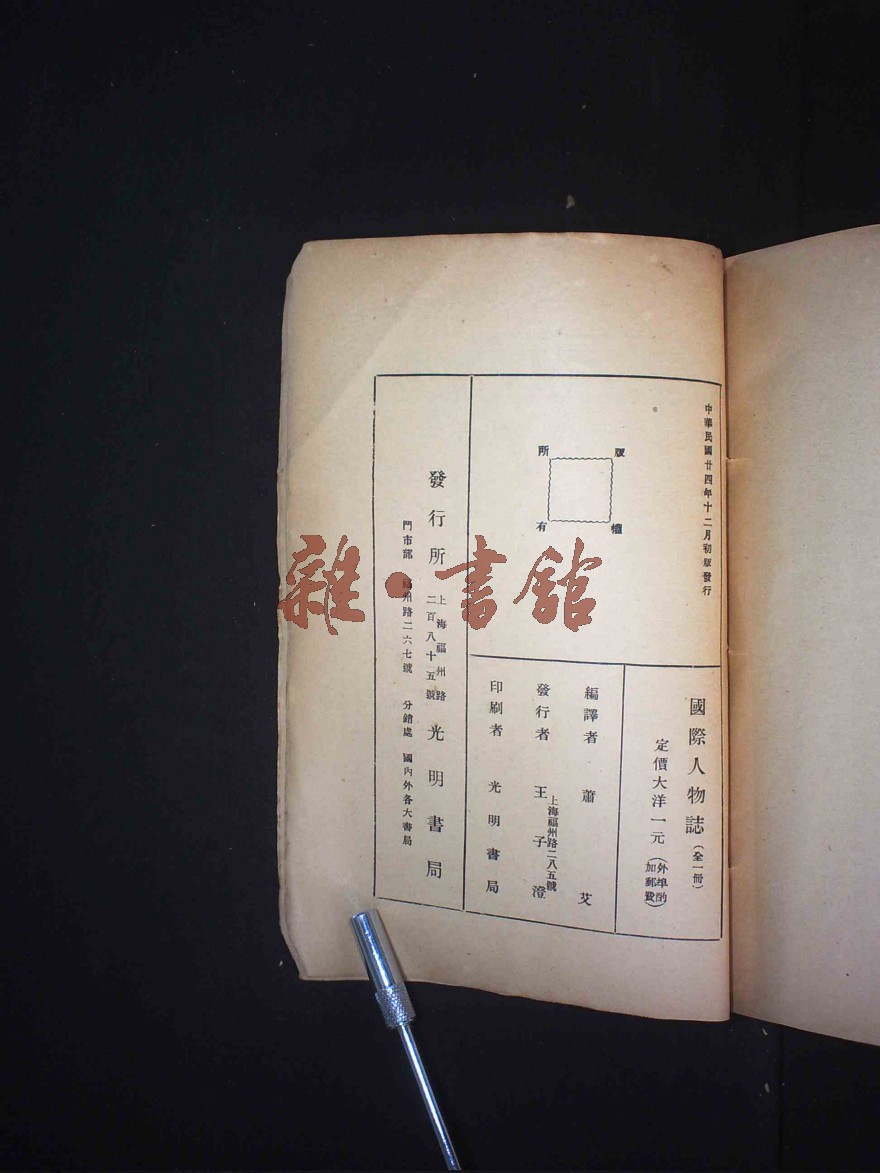 中華民國廿四年十二月初版發行
版權所有
國際人物誌（全一冊）
定價大洋一元（外埠酌加郵費）
編譯者 蕭艾
發行者 王子澄
上海福州路二八五號
印刷者 光明書局
發行所 上海福州路二百八十五號 光明書局
門市部 福州路二六七號 分銷處 國內外各大書局
雜·書館